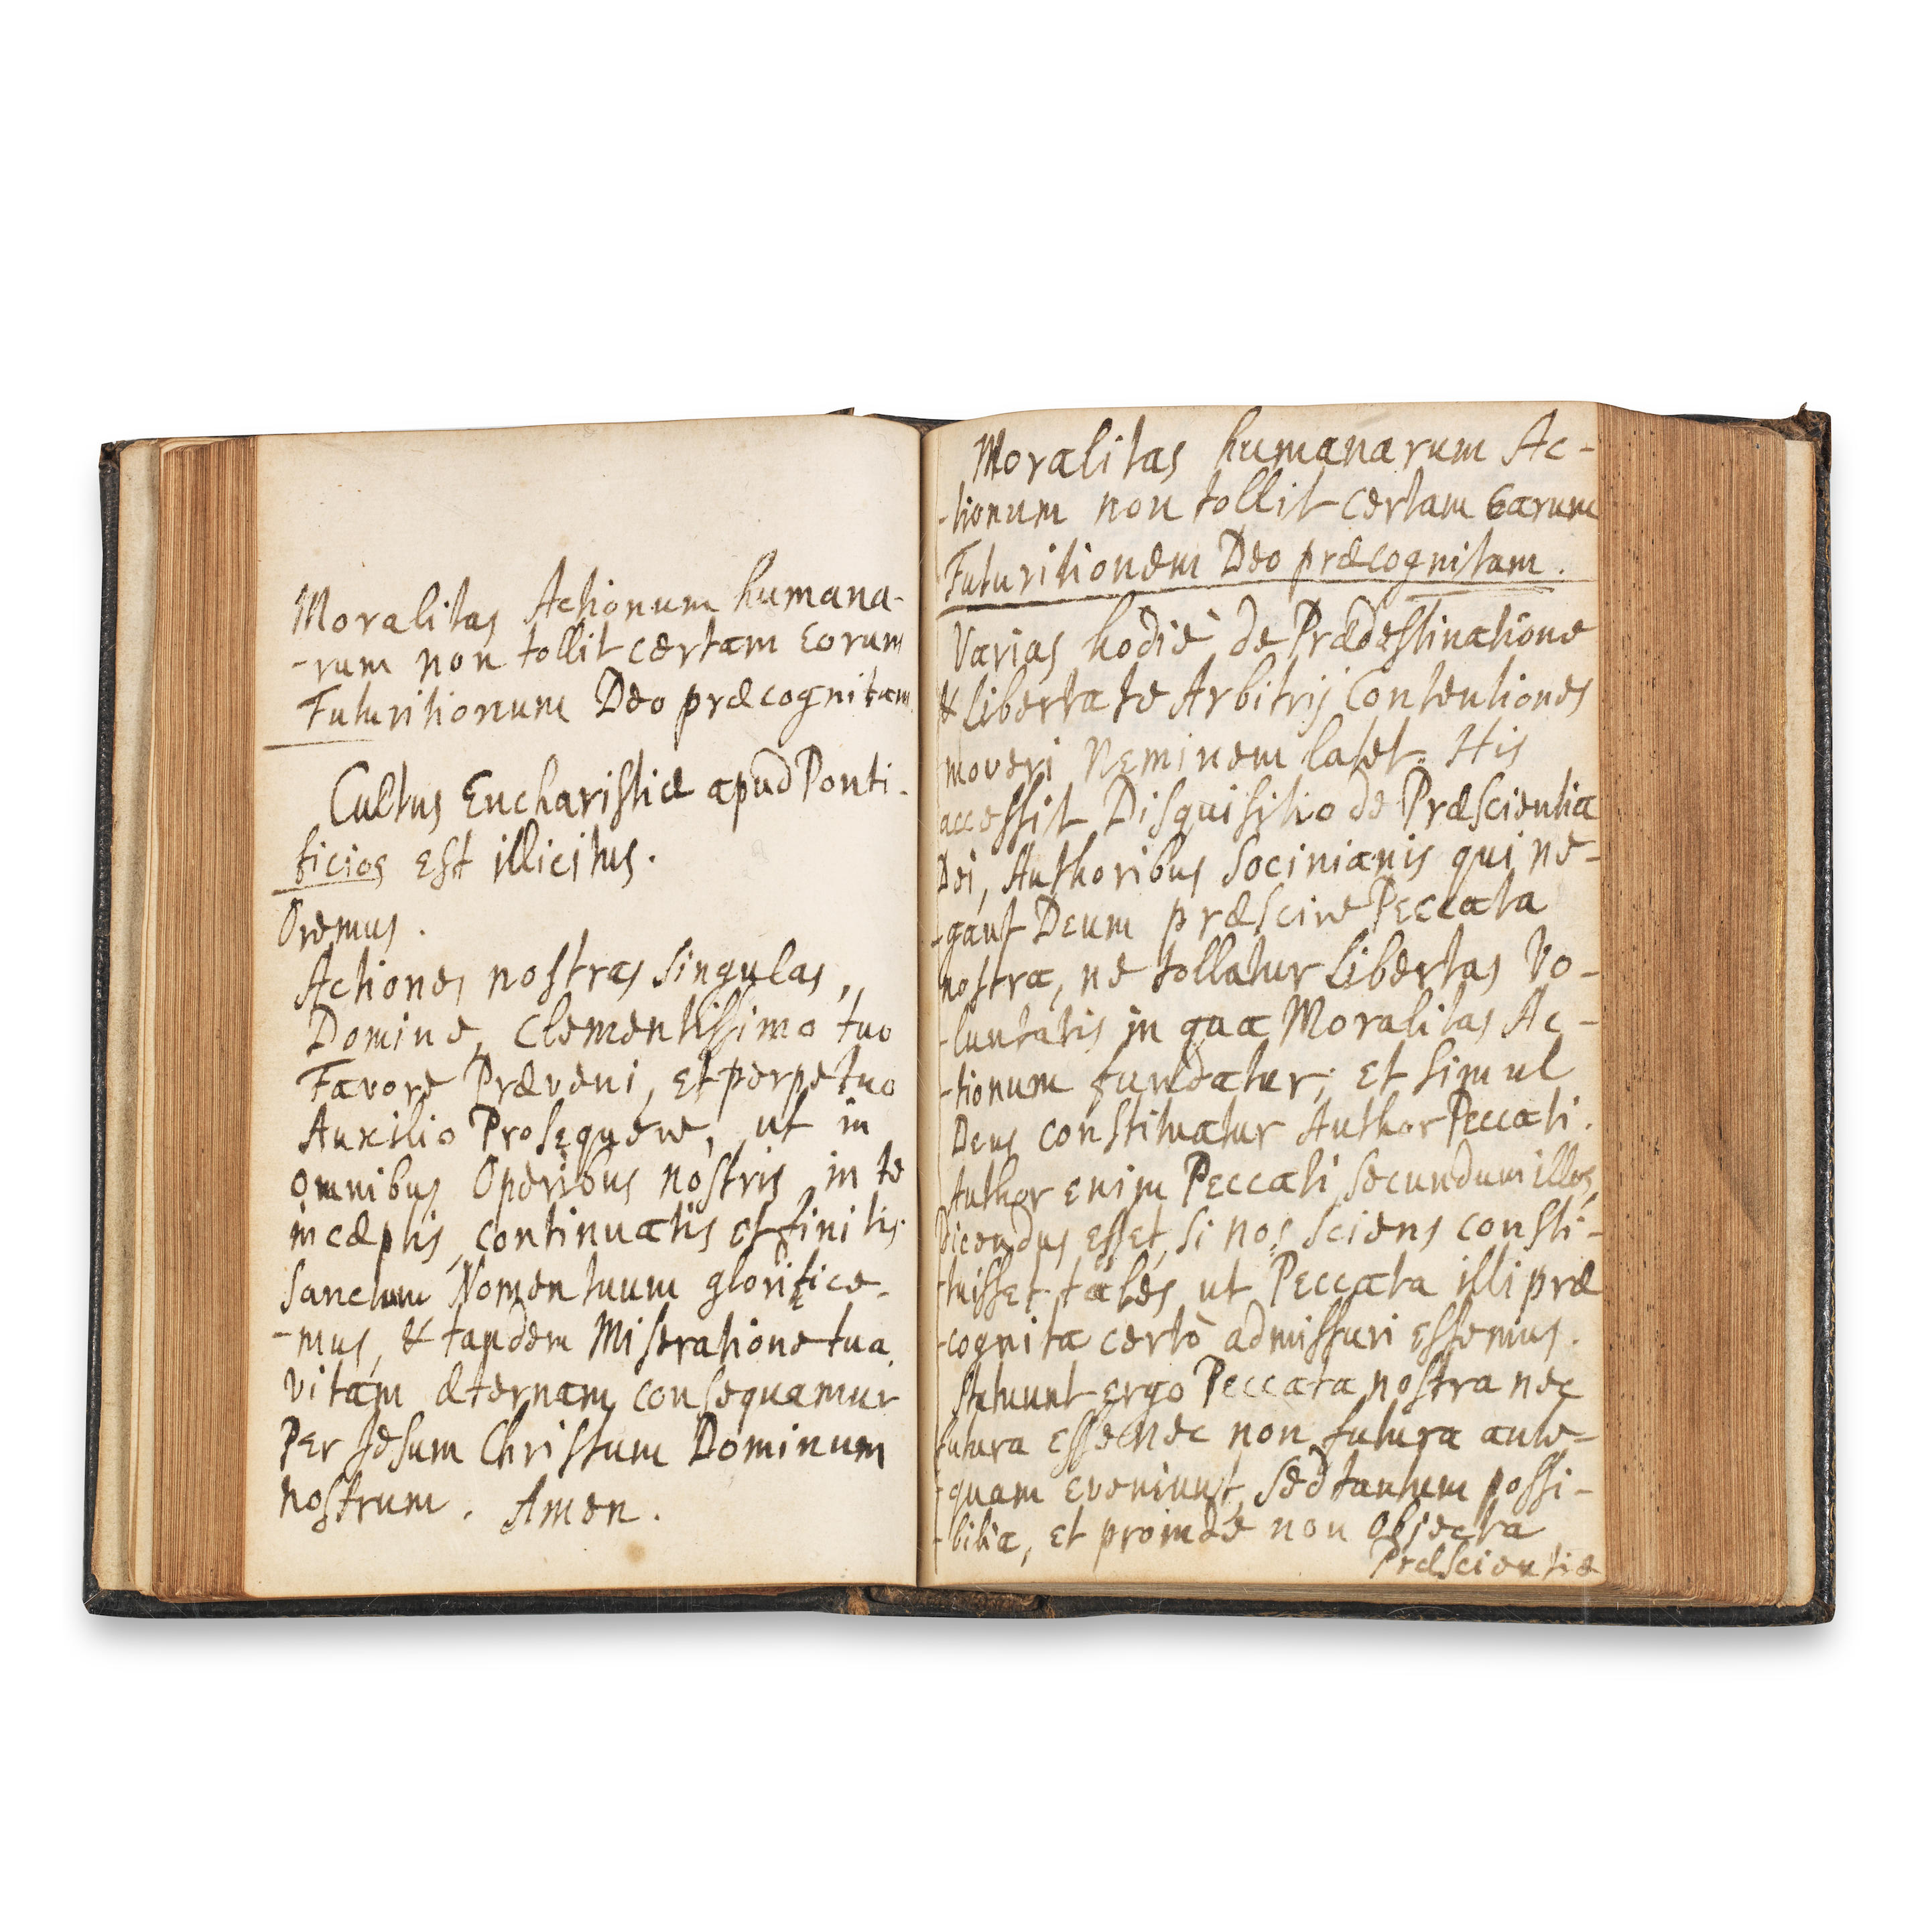 Moralitas Actionum humana-
-rum non tollit certam Eorum
Futuritionum Deo præcognitam
Cultus Eucharistiæ apud Ponti-
ficios Est illicitus.
Oremus.
Actiones nostras singulas,
Domine, Clementissimo tuo
Favore Præveni, et perpetuo
Auxilio Prosequere, ut in
omnibus Operibus nostris in te
incæptis, continuatis et finitis
Sanctum Nomen tuum glorifice-
-mus, & tandem Miseratione tua
vitam æternam consequamur
Per Jesum Christum Dominum
nostrum. Amen.
Moralitas humanarum Ac-
-tionum non tollit certam Earum
Futuritionem Deo præcognitam.
Varias hodiè de Prædestinatione
& Libertate Arbitrij Contentiones
moveri Neminem latet. His
accessit Disquisitio de Præscientia
Dei, Authoribus Socinianis qui ne-
-gant Deum præscire Peccata
nostra, ne tollatur Libertas Vo-
-luntatis in qua Moralitas Ac-
-tionum fundatur; et simul
Deus constituatur Author Peccati.
Author enim Peccati, secundum illos,
Dicendus esset, si nos sciens consti-
-tuisset tales ut Peccata illi præ
-cognita certò admissuri essemus.
Statuunt ergo Peccata nostra nec
futura esse nec non futura ante-
-quam eveniunt, sed tantum possi-
-bilia, et proinde non objecta
Præscientiæ